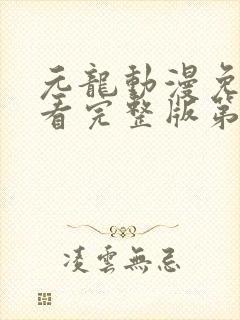 元龍動漫免
看完整版第
凌雲無忌